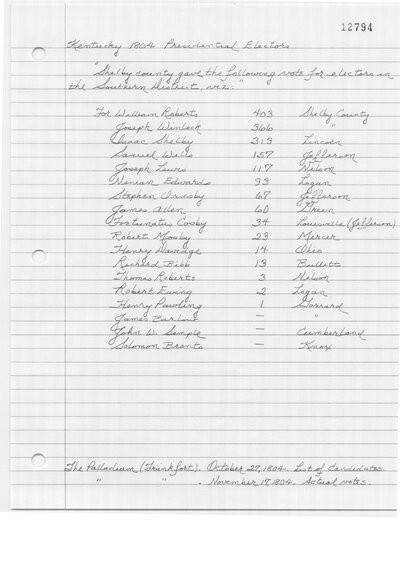 12794
Kentucky 1804 Presidential Electors
"Shelby county gave the following vote for electors in
the Southern District, viz:"
For William Roberts 403 Shelby County
Joseph Winlock 366 "
Isaac Shelby 313 Lincoln
Samuel Wells 157 Jefferson
Joseph Lewis 117 Nelson
Ninean Edwards 93 Logan
Stephen Ormsby 67 Jefferson
James Allen 60 Green
Fortunatus Cosby 34 Louisville (Jefferson)
Robert Mosby 23 Mercer
Henry Davidge 14 Ohio
Richard Bibb 13 Bullitt
Thomas Roberts 3 Nelson
Robert Ewing 2 Logan
Henry Pawling 1 Garrard
James Barlow — "
John W. Semple — Cumberland
Solomon Brents — Knox
The Palladium (Frankfort). October 27, 1804. List of Candidates.
" " . November 17, 1804. Actual votes.